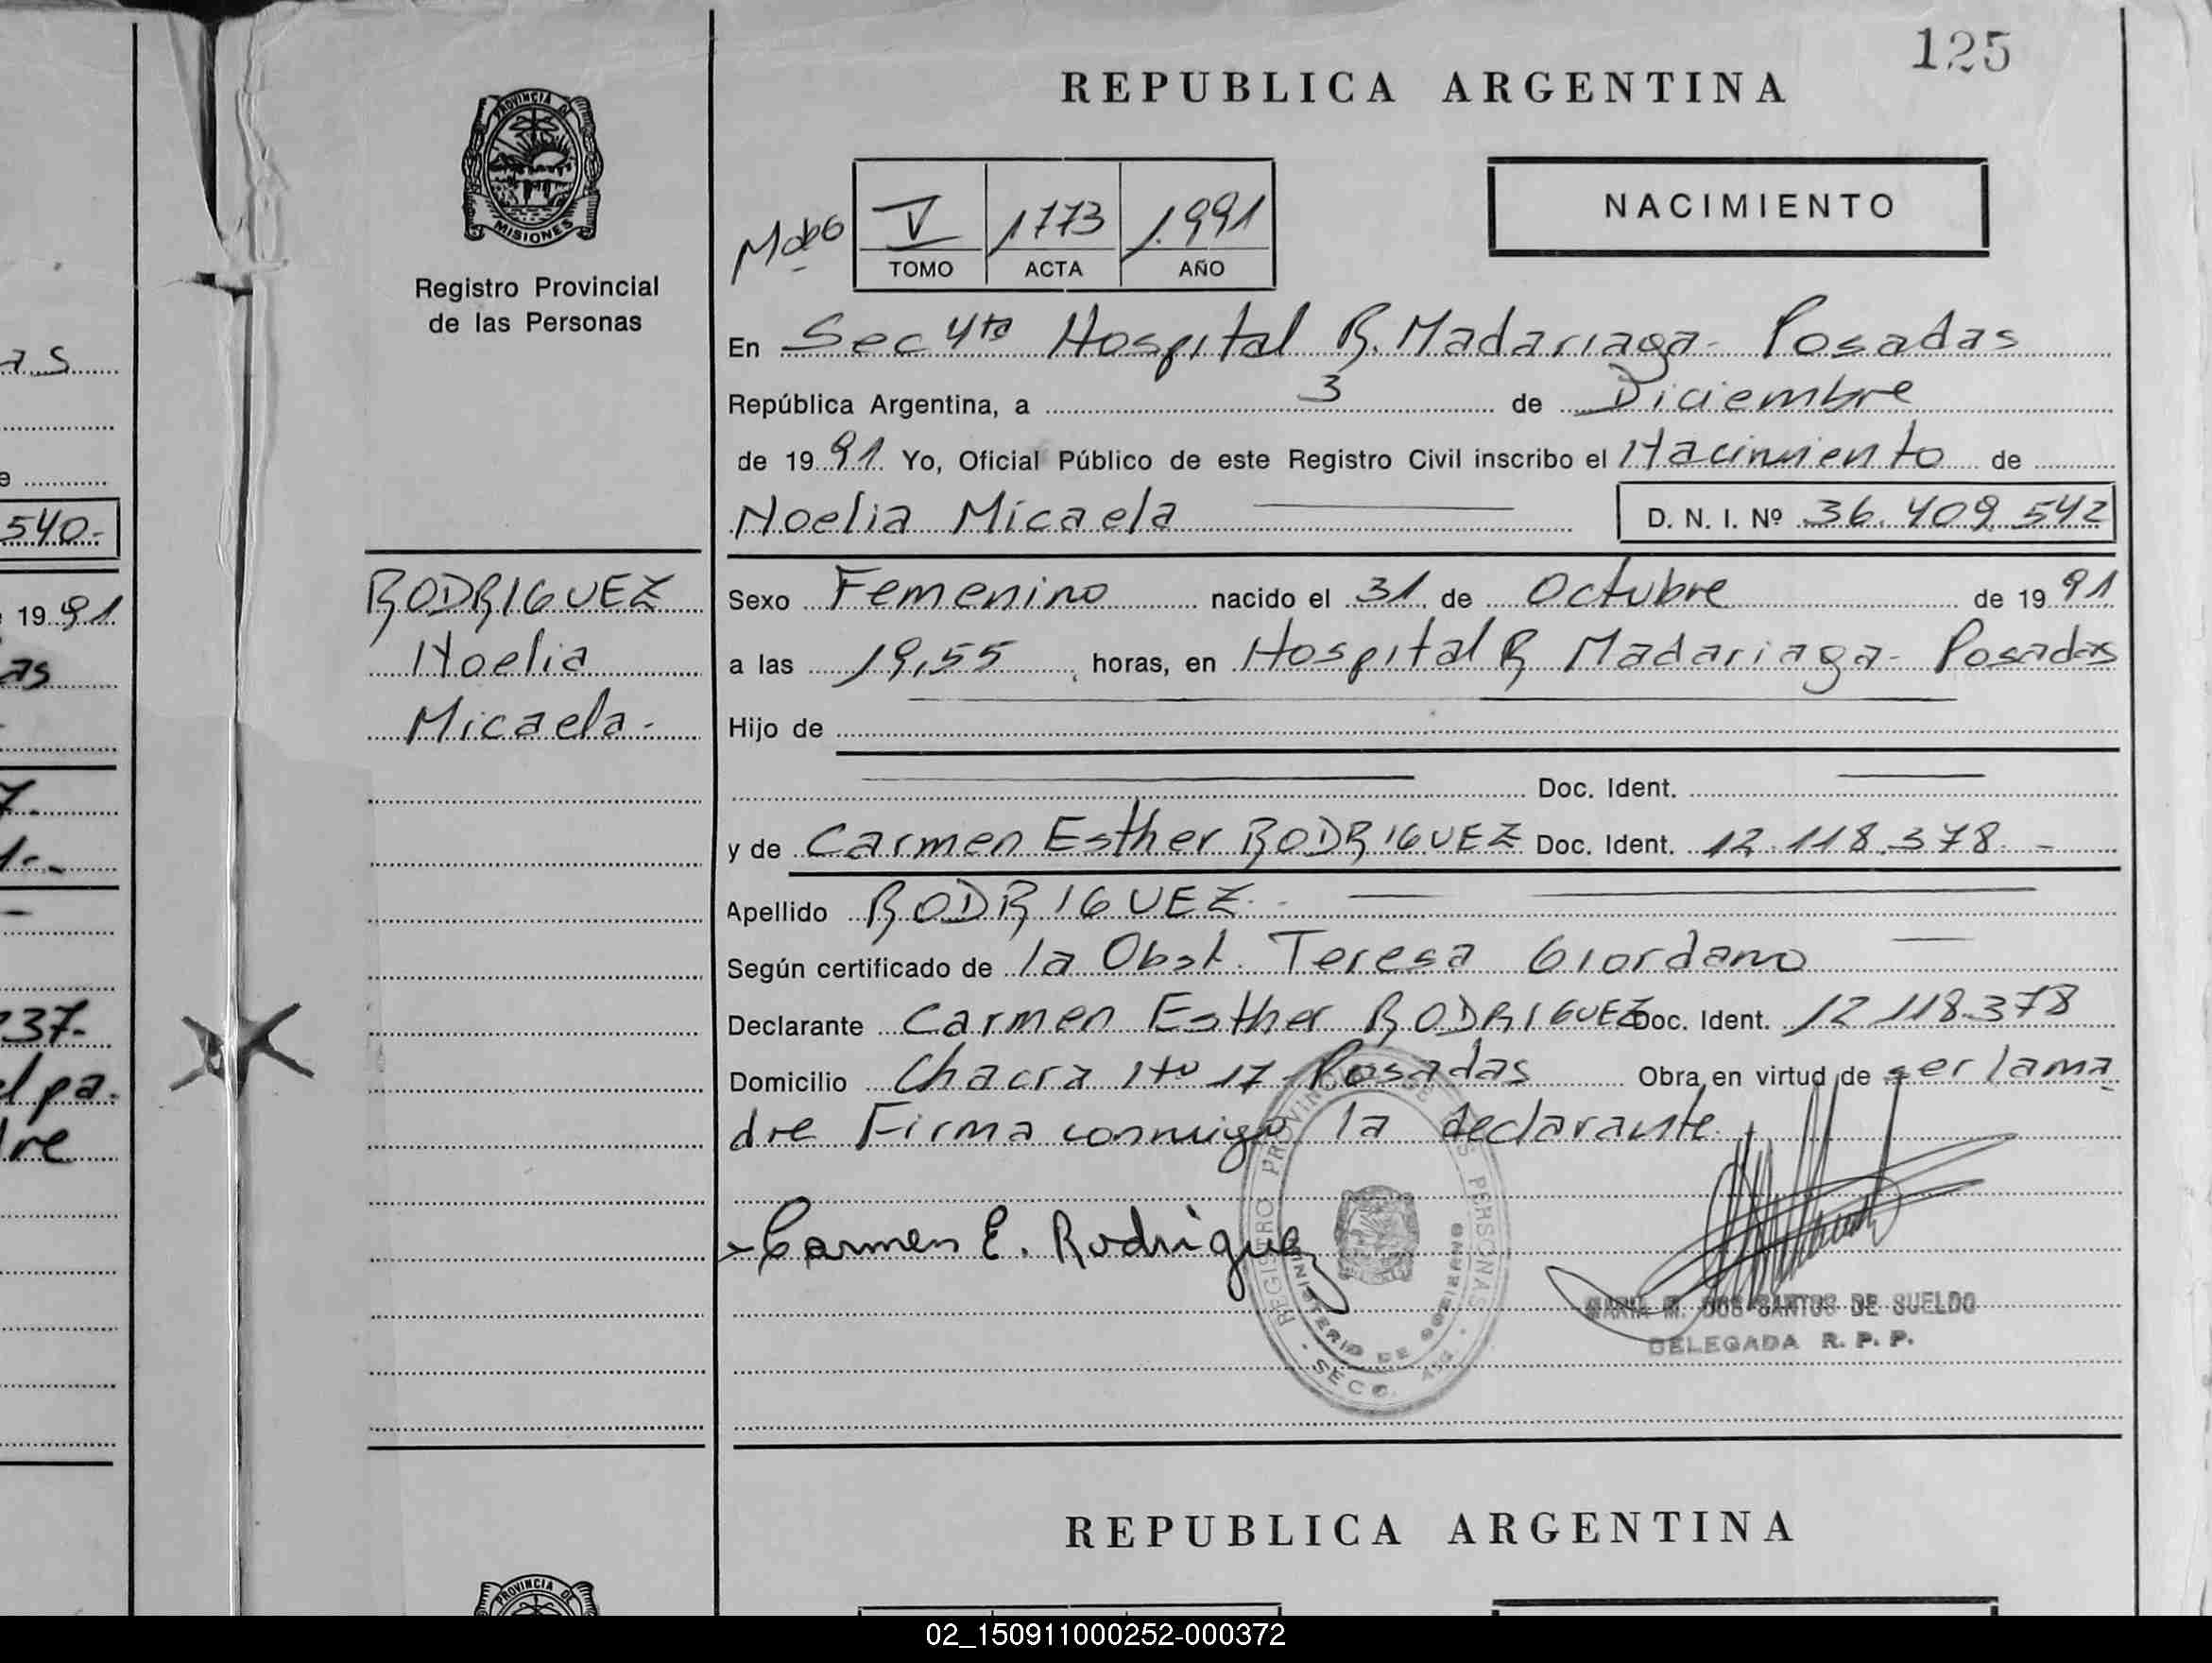 125
REPUBLICA ARGENTINA
PROVINCIA DE
MISIONES
Registro Provincial
de las Personas
NACIMIENTO
V 1773 1.991
TOMO ACTA AÑO
En Sec 4ta Hospital R. Madariaga - Posadas
República Argentina, a 3 de Diciembre
de 19 91 Yo, Oficial Público de este Registro Civil inscribo el Nacimiento de
Noelia Micaela D. N. I. Nº 36.409.542
RODRIGUEZ
Noelia
Micaela.-
Sexo Femenino nacido el 31 de Octubre de 19 91
a las 19,55 horas, en Hospital R Madariaga - Posadas
Hijo de
Doc. Ident.
y de Carmen Esther RODRIGUEZ Doc. Ident. 12.118.378.-
Apellido RODRIGUEZ.-
Según certificado de la Obst. Teresa Giordano
Declarante Carmen Esther RODRIGUEZ Doc. Ident. 12.118.378
Domicilio Chacra Nº 17 - Posadas Obra en virtud de ser la ma
dre Firma conmigo la declarante.
Carmen E. Rodriguez
REGISTRO PROVINCIAL DE LAS PERSONAS
MINISTERIO DE GOBIERNO
SECC.
MARIA M. DOS SANTOS DE SUELDO
DELEGADA R. P. P.
as
e
540-
19 91
as
7.
1.-
237-
el pa-
dre
REPUBLICA ARGENTINA
PROVINCIA DE
02_150911000252-000372